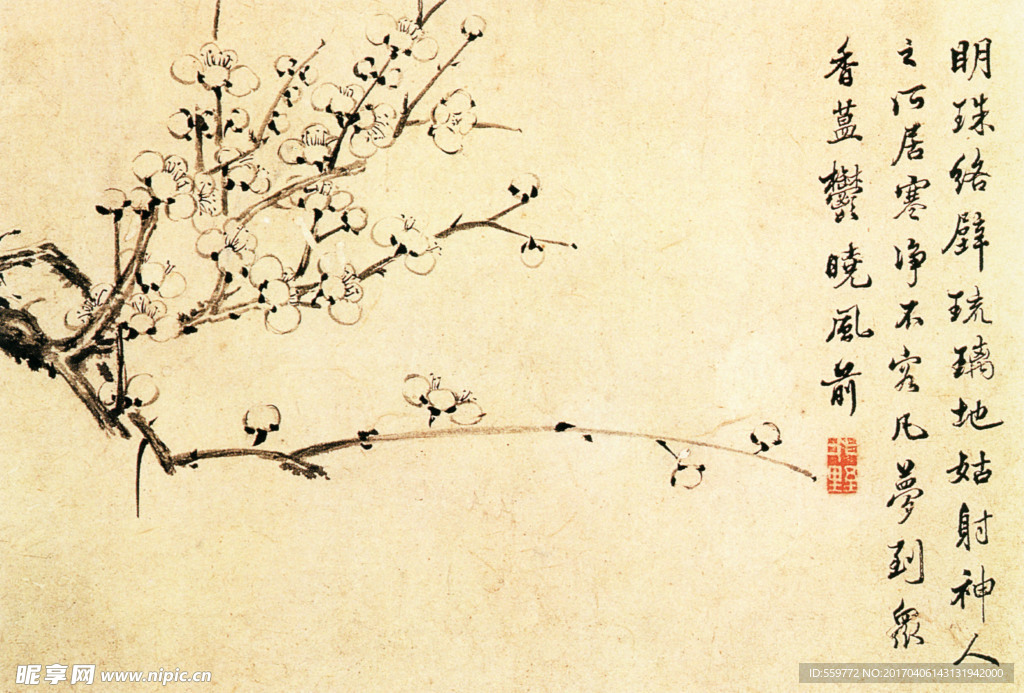 明珠絡璧琉璃地姑射神人
之所居寒净不容凡夢到衆
香蒀鬱曉風前
昵享网 www.nipic.cn
ID:559772 NO:20170406143131942000